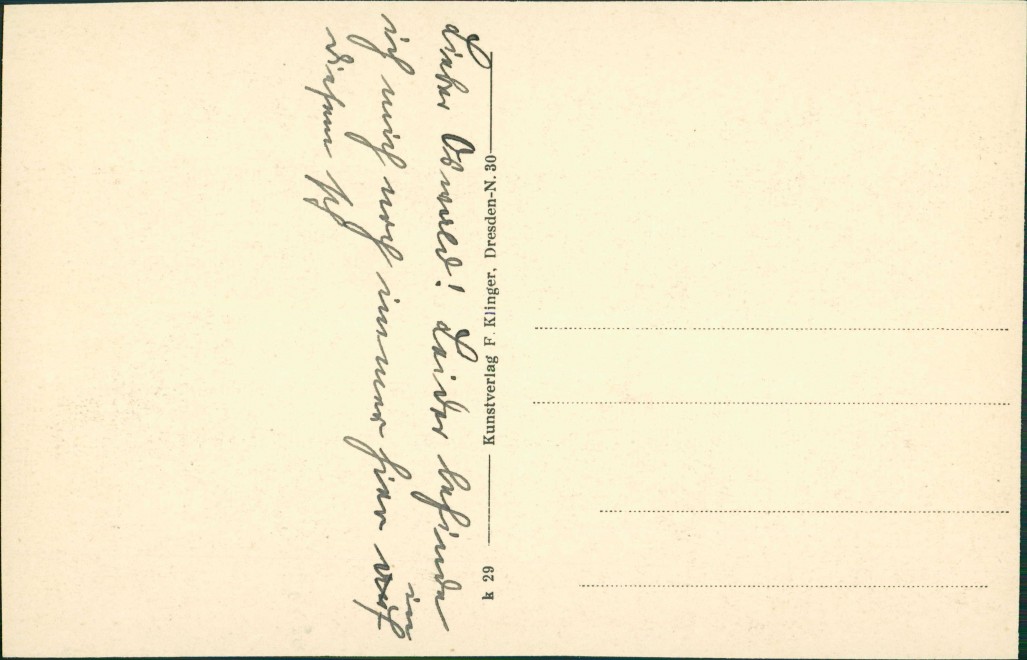 Lieber Oswald! Leider befinde
ich mich noch immer hier auf
in
diesem
k 29 Kunstverlag F. Klinger, Dresden-N. 30